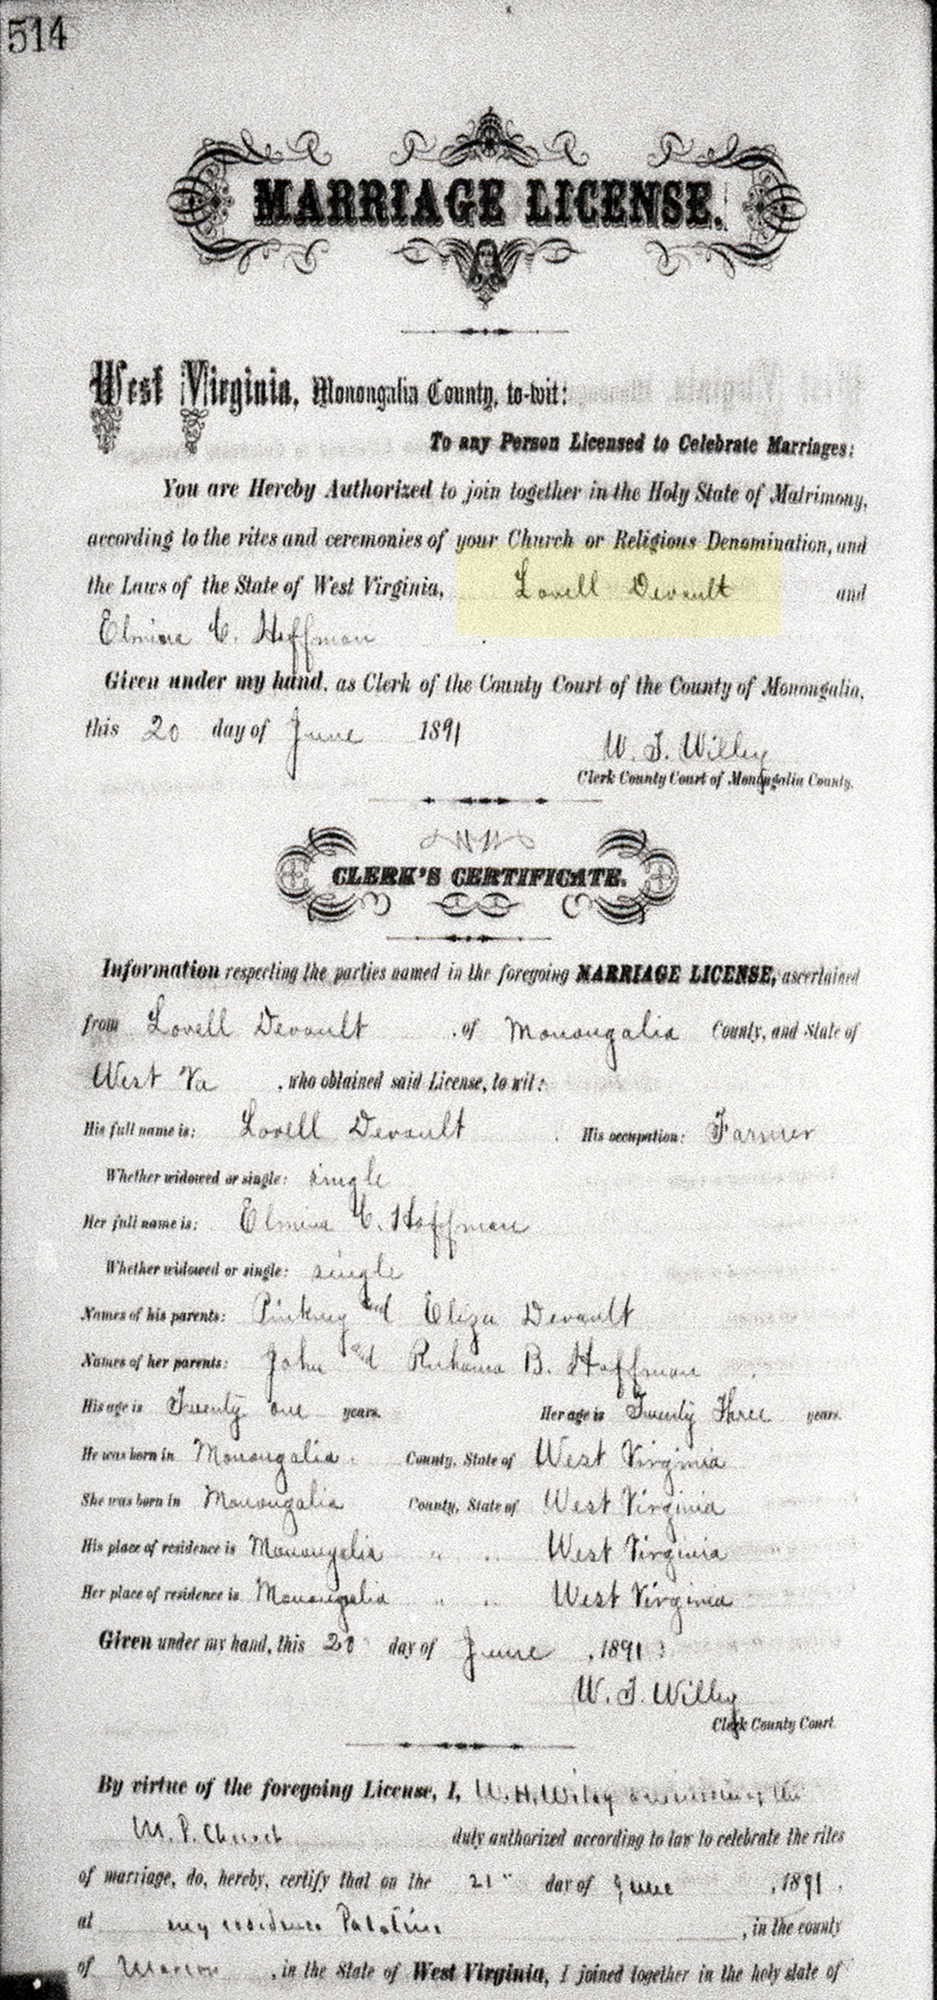 514
MARRIAGE LICENSE.
West Virginia, Monongalia County, to-wit:
To any Person Licensed to Celebrate Marriages:
You are Hereby Authorized to join together in the Holy State of Matrimony,
according to the rites and ceremonies of your Church or Religious Denomination, and
the Laws of the State of West Virginia, Lovell Devault and
Elmira C. Hoffman
Given under my hand, as Clerk of the County Court of the County of Monongalia,
this 20 day of June 1891
W. T. Willey
Clerk County Court of Monongalia County.
CLERK'S CERTIFICATE.
Information respecting the parties named in the foregoing MARRIAGE LICENSE, ascertained
from Lovell Devault of Monongalia County, and State of
West Va , who obtained said License, to wit:
His full name is: Lovell Devault His occupation: Farmer
Whether widowed or single: single
Her full name is: Elmira C. Hoffman
Whether widowed or single: single
Names of his parents: Pinkney and Eliza Devault
Names of her parents: John and Ruhama B. Hoffman
His age is Twenty one years. Her age is Twenty Three years.
He was born in Monongalia County, State of West Virginia
She was born in Monongalia County, State of West Virginia
His place of residence is Monongalia " " West Virginia
Her place of residence is Monongalia " " West Virginia
Given under my hand, this 20 day of June , 1891
W. T. Willey
Clerk County Court.
By virtue of the foregoing License, I, W. H. Wiley
M. P. Church duly authorized according to law to celebrate the rites
of marriage, do, hereby, certify that on the 21" day of June , 1891.
at my residence Palatine , in the county
of Marion , in the State of West Virginia, I joined together in the holy state of